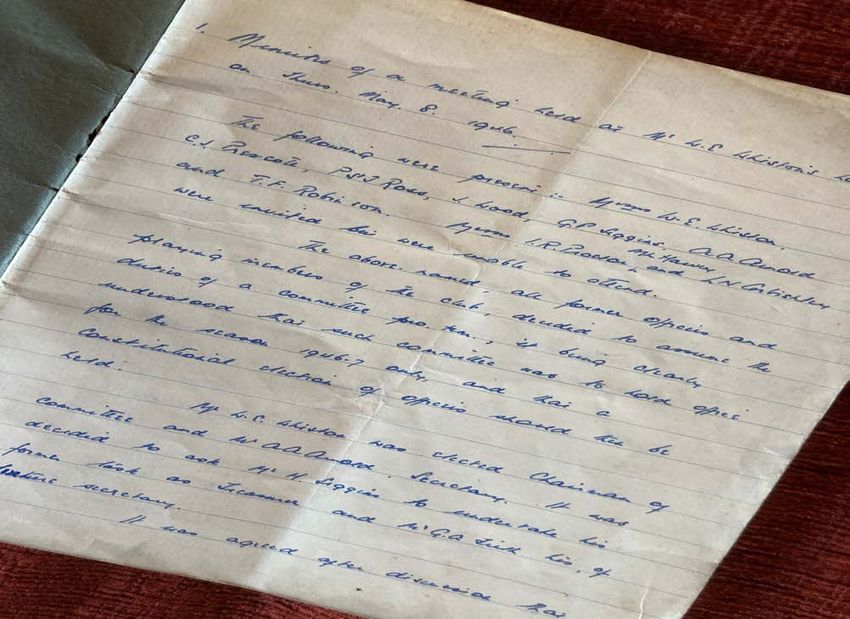 1. Minutes of a meeting held at Mr W.E. Whiston's
on Thurs. May. 8. 1946.
The following were present:- Messrs W.E. Whiston,
C.J. Prescott, P.S.J. Ross, J. Wood, G.P. Siggins, A.A. Amord
and T.F. Robinson. Messrs I.R. Dodson, Mr Hawen and L.N. Corbishley
were invited but were unable to attend.
The above named all former officers and
playing members of the club, decided to assume the
duties of a committee pro tem., it being clearly
understood that such committee was to hold office
for the season 1946-7 only, and that a
constitutional election of officers should then be
held.
Mr W.E. Whiston was elected Chairman of
committee and Mr A.A. Amord Secretary. It was
decided to ask Mr H. Siggins to undertake his
former task as Treasurer and Mr G.A. his, of
fixture secretary.
It was agreed after discussion that